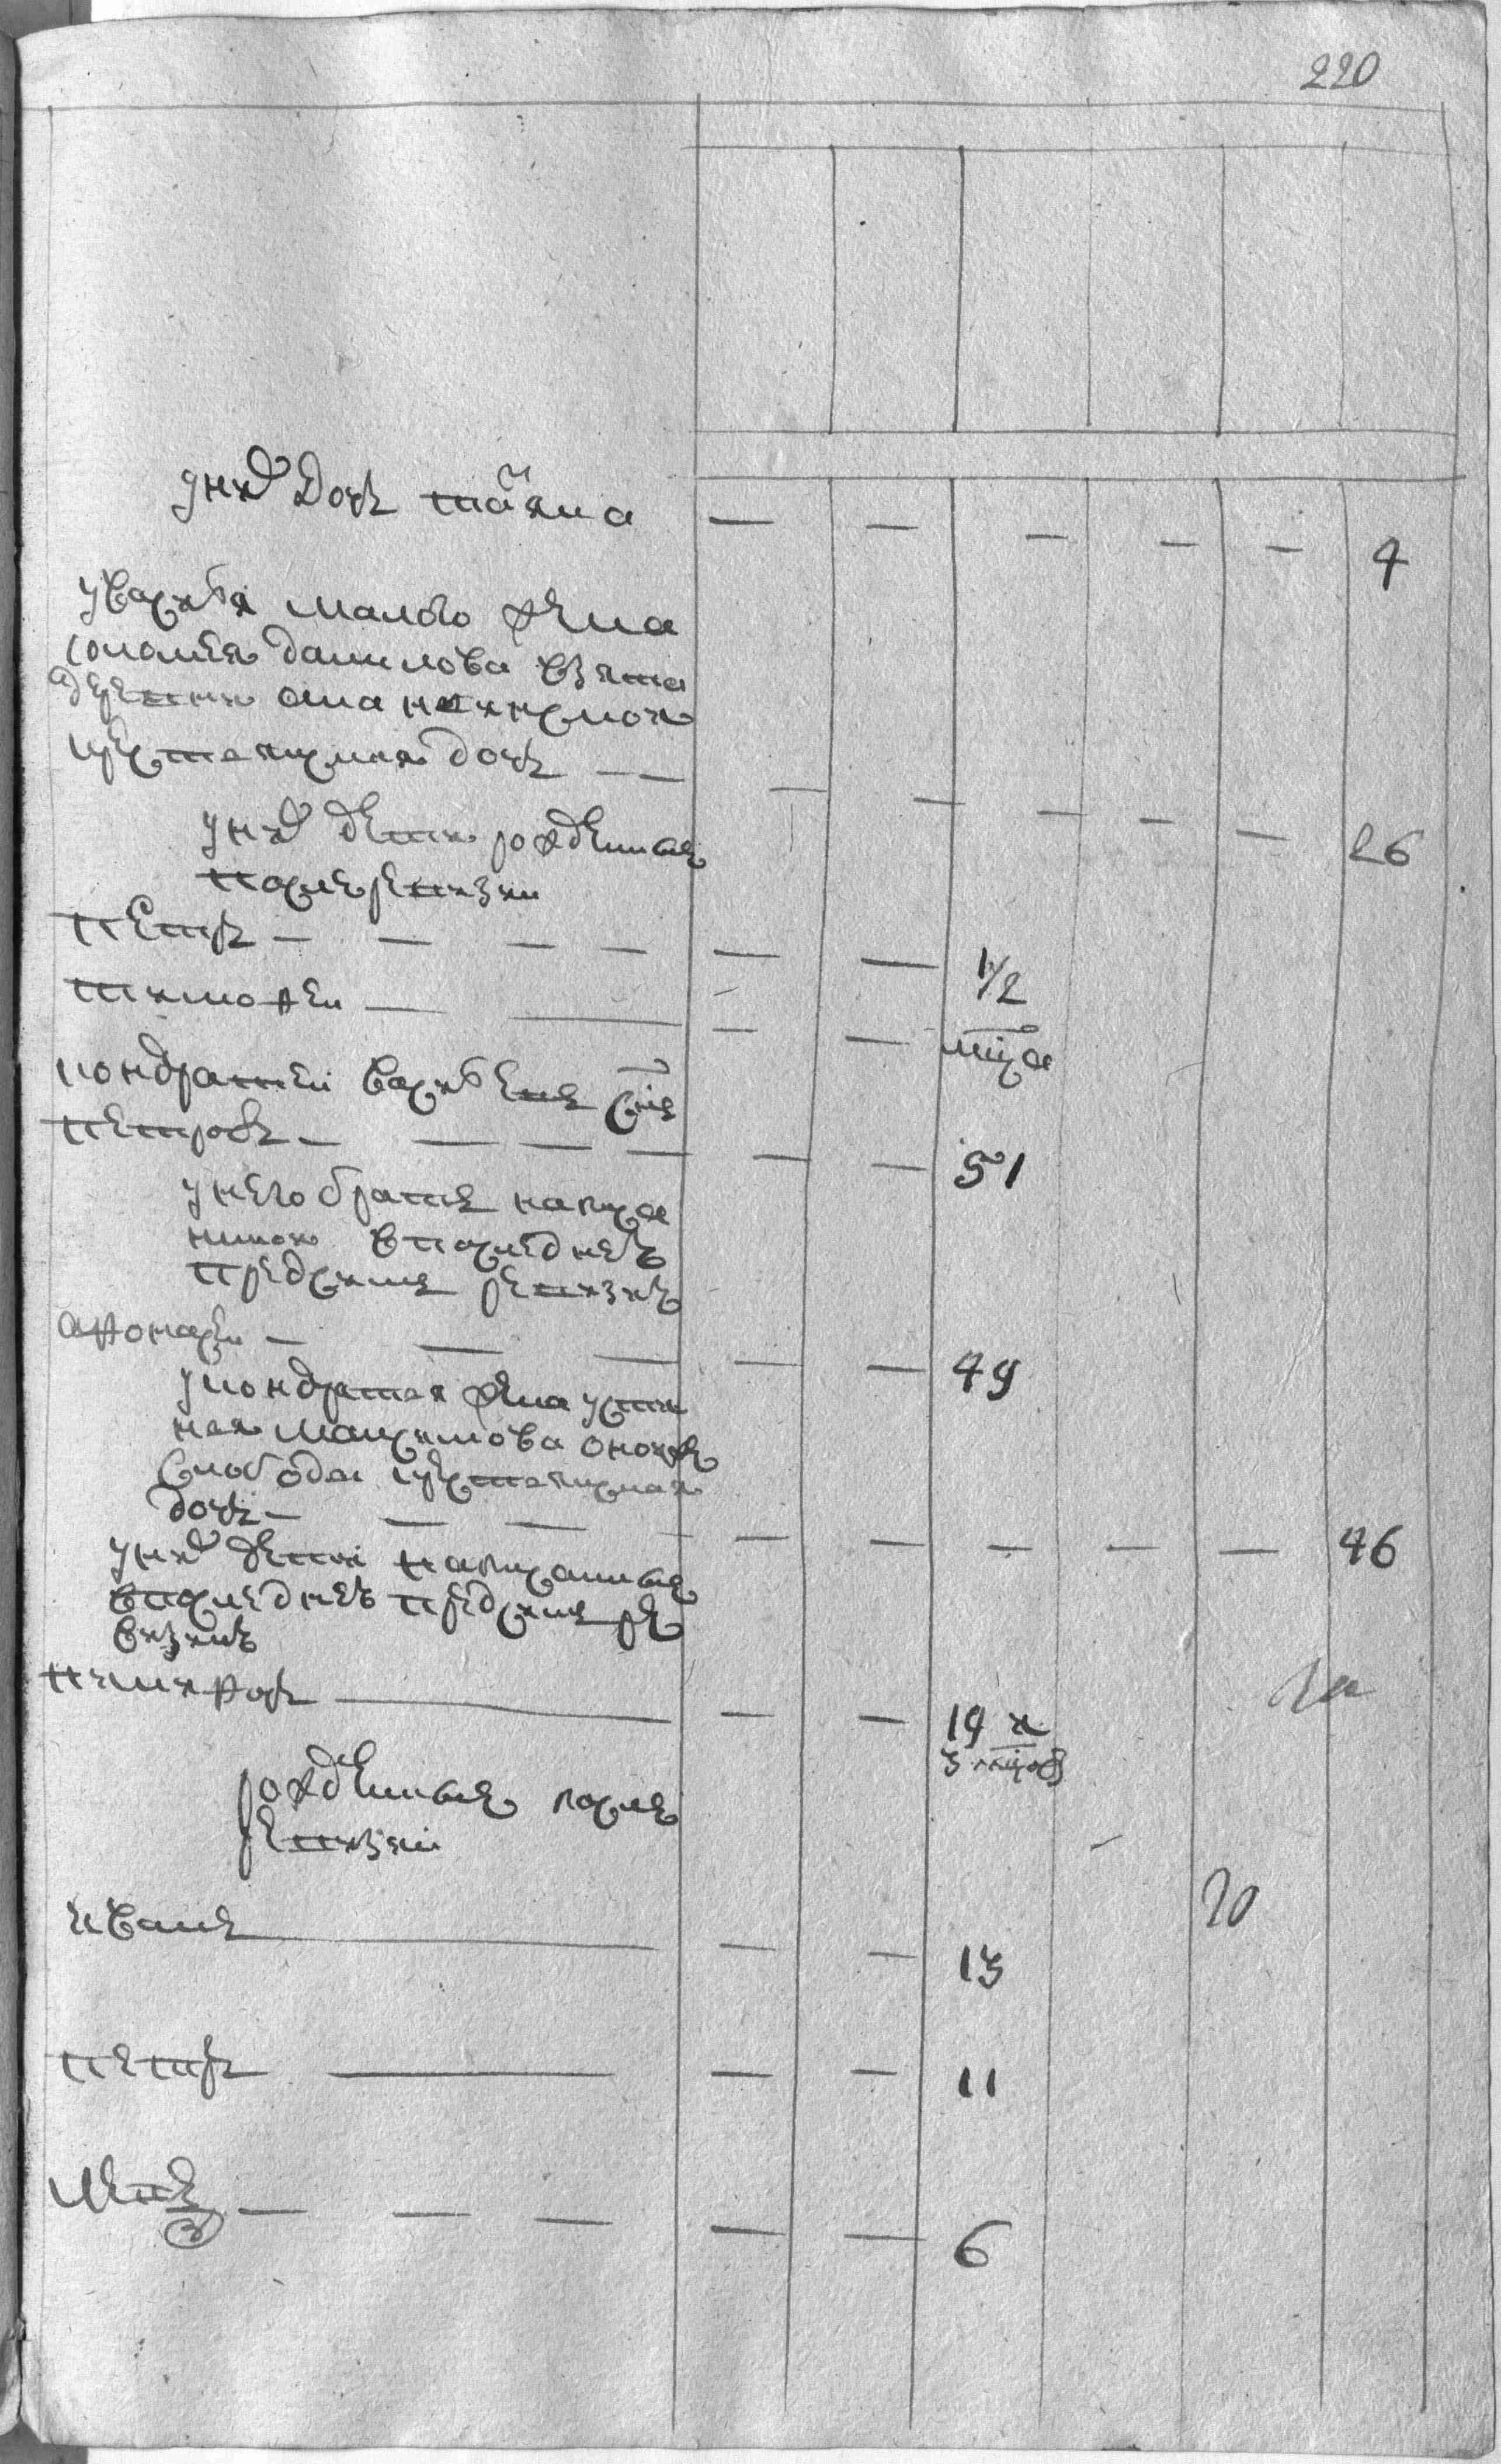 220
у них дочь татьяна — — — — — 4
у василья малого жена
соломея данилова взята
крестьянская дочь — — — — — — — 26
у них дети рожденные
после ревизии
петръ — — — — — — 1/2
тимофеи — — — — — месяца
кондратеи васильевъ сынъ
петровъ — — — — — — 51
у него братъ написа
нной в последней
пред сим ревизие
афонасеи — — — — — 49
у кондратья жена усти
нья максимова оной же
слободы крестьянская
дочь — — — — — — — — 46
у них дети написанные
в последней пред сим ре
визие
никифоръ — — — 19 и
3 месяцов
рожденные после
ревизии
иванъ — — — 13
20
петръ — — — 11
— — — — — 6